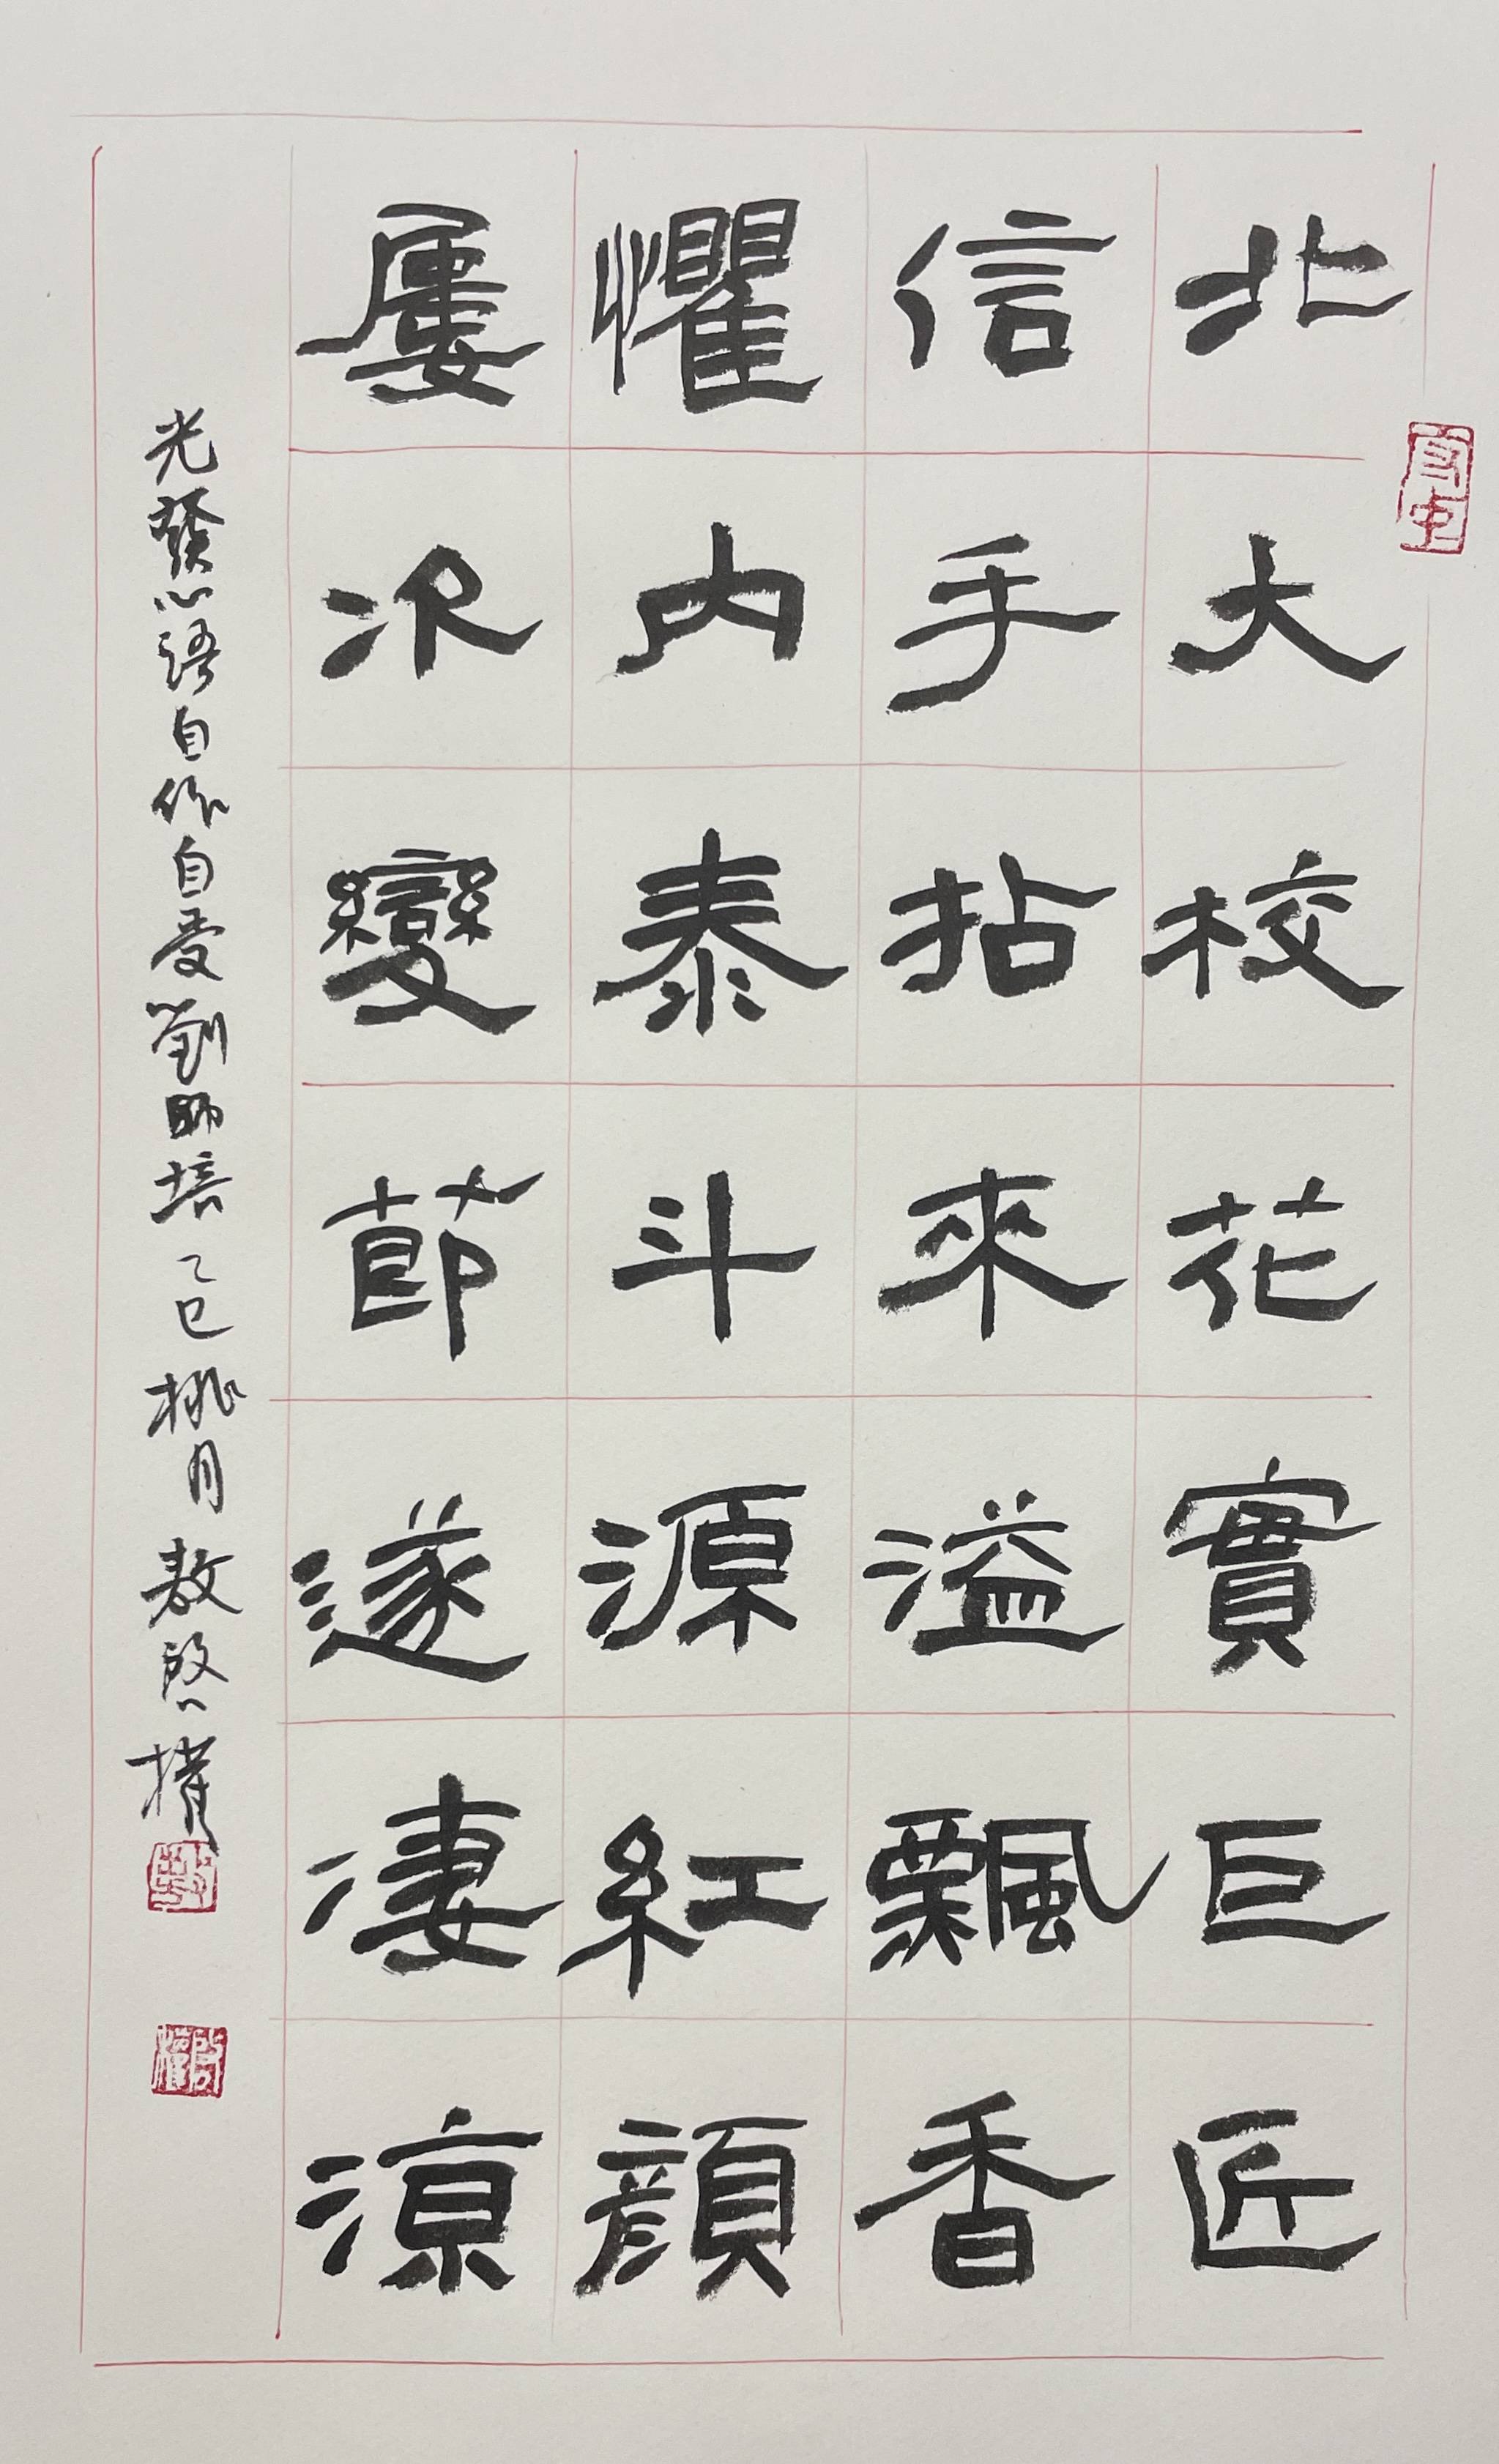 北大校花實巨匠
信手拈來溢飄香
懼內泰斗源紅顏
屢次變節遂淒涼
光發心語自作自受劉師培乙巳桃月敖啓權